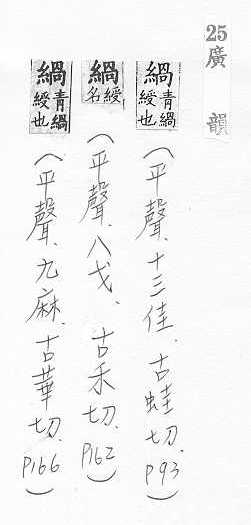 25廣韻
緺青緺綬也(平聲、十三佳、古蛙切、P93)
緺綬名(平聲、八戈、古禾切、P162)
緺青緺綬也(平聲、九麻、古華切、P166)